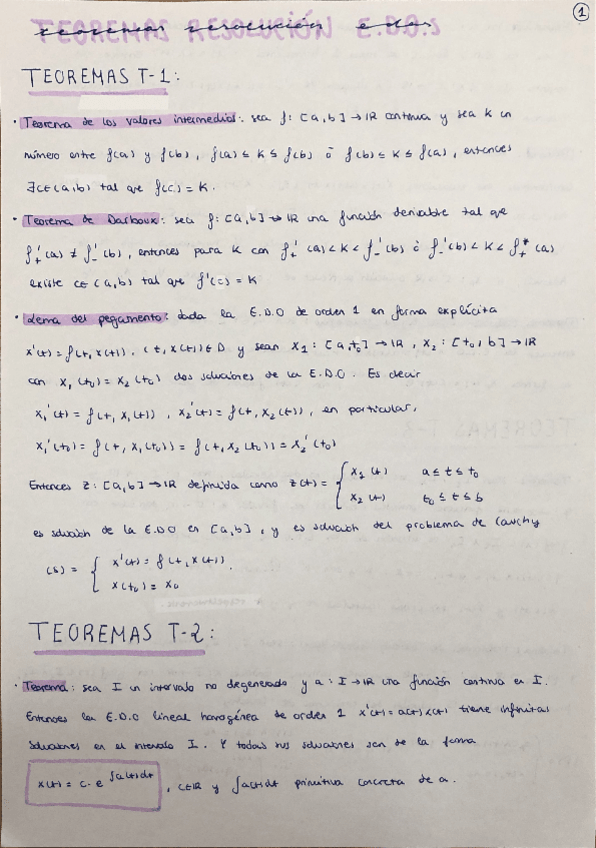 ①
TEOREMAS RESOLUCIÓN E.D.O.s
TEOREMAS T-1:
· Teorema de los valores intermedios: sea f: [a,b] → IR continua y sea K un
número entre f(a) y f(b), f(a) ≤ K ≤ f(b) ó f(b) ≤ K ≤ f(a), entonces
∃c∈(a,b) tal que f(c) = K.
· Teorema de Darboux: sea f: [a,b] → IR una función derivable tal que
f₊'(a) ≠ f₋'(b), entonces para K con f₊'(a) < K < f₋'(b) ó f₋'(b) < K < f₊'(a)
existe c∈(a,b) tal que f'(c) = K
· Lema del pegamento: dada la E.D.O de orden 1 en forma explícita
x'(t) = f(t, x(t)). (t, x(t)) ∈ D y sean x₁: [a,t₀] → IR, x₂: [t₀,b] → IR
con x₁(t₀) = x₂(t₀) dos soluciones de la E.D.O. Es decir
x₁'(t) = f(t, x₁(t)), x₂'(t) = f(t, x₂(t)), en particular,
x₁'(t₀) = f(t, x₁(t₀)) = f(t, x₂(t₀)) = x₂'(t₀)
Entonces z: [a,b] → IR definida como z(t) = { x₁(t) a ≤ t ≤ t₀
x₂(t) t₀ ≤ t ≤ b
es solución de la E.D.O en [a,b], y es solución del problema de Cauchy
(S) = { x'(t) = f(t, x(t)).
x(t₀) = x₀
TEOREMAS T-2:
· Teorema: sea I un intervalo no degenerado y a: I → IR una función continua en I.
Entonces la E.D.O lineal homogénea de orden 1 x'(t) = a(t)x(t) tiene infinitas
soluciones en el intervalo I. Y todas sus soluciones son de la forma
x(t) = c · e^∫a(t)dt, c∈IR y ∫a(t)dt primitiva concreta de a.